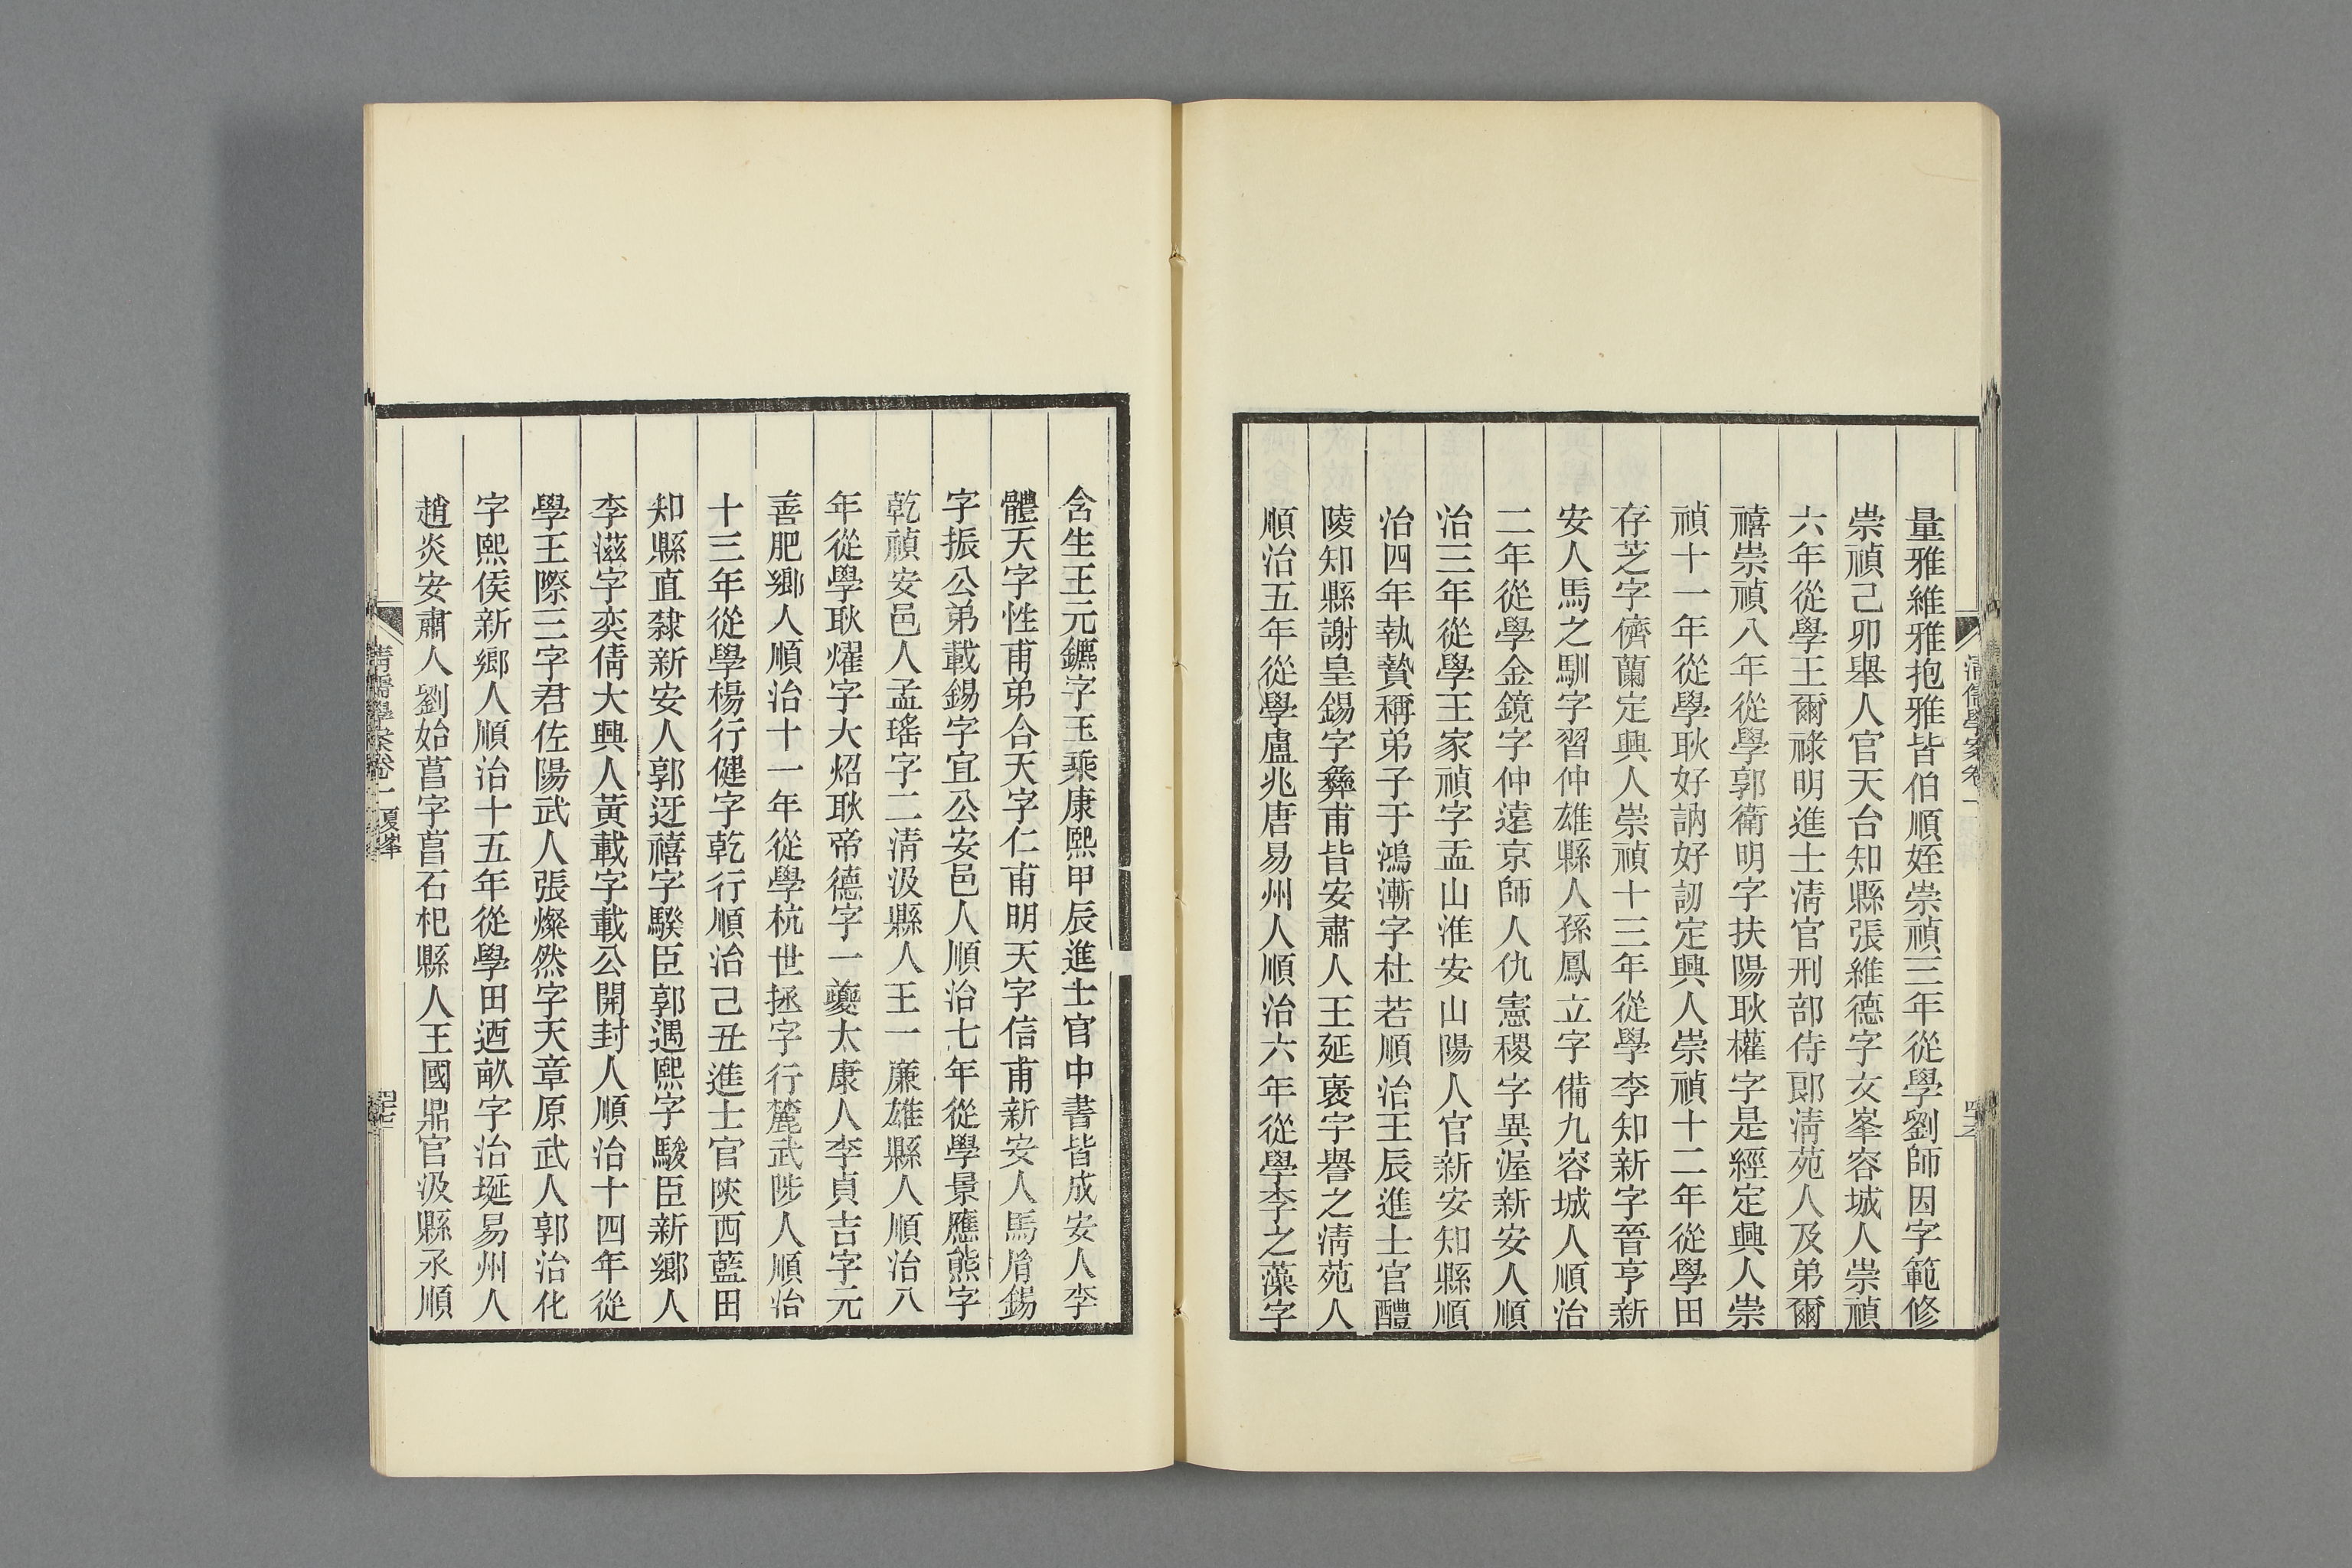 量雅維雅抱雅皆伯順姪崇禎三年從學劉師因字範修
崇禎己卯舉人官天台知縣張維德字友峯容城人崇禎
六年從學王爾祿明進士清官刑部侍郎清苑人及弟爾
禧崇禎八年從學郭衛明字扶陽耿權字是經定興人崇
禎十一年從學耿好訥好訒定興人崇禎十二年從學田
存芝字儕蘭定興人崇禎十三年從學李知新字晉亨新
安人馬之馴字習仲雄縣人孫鳳立字備九容城人順治
二年從學金鏡字仲遠京師人仇憲稷字異渥新安人順
治三年從學王家禎字孟山淮安山陽人官新安知縣順
治四年執贄稱弟子于鴻漸字杜若順治壬辰進士官醴
陵知縣謝皇錫字彝甫皆安肅人王延褒字譽之清苑人
順治五年從學盧兆唐易州人順治六年從學李之藻字
含生王元鑣字玉乘康熙甲辰進士官中書皆成安人李
體天字性甫弟合天字仁甫明天字信甫新安人馬胤錫
字振公弟載錫字宜公安邑人順治七年從學景應熊字
乾禎安邑人孟瑤字二清汲縣人王一廉雄縣人順治八
年從學耿燿字大炤耿帝德字一夔太康人李貞吉字元
善肥鄉人順治十一年從學杭世拯字行麓武陟人順治
十三年從學楊行健字乾行順治己丑進士官陝西藍田
知縣直隸新安人郭迓禧字騤臣郭遇熙字駿臣新鄉人
李滋字奕倩大興人黃載字載公開封人順治十四年從
學王際三字君佐陽武人張燦然字天章原武人郭治化
字熙侯新鄉人順治十五年從學田迺畝字治埏易州人
趙炎安肅人劉始菖字菖石杞縣人王國鼎官汲縣丞順
清儒學案卷一
清儒學案卷一 夏峯